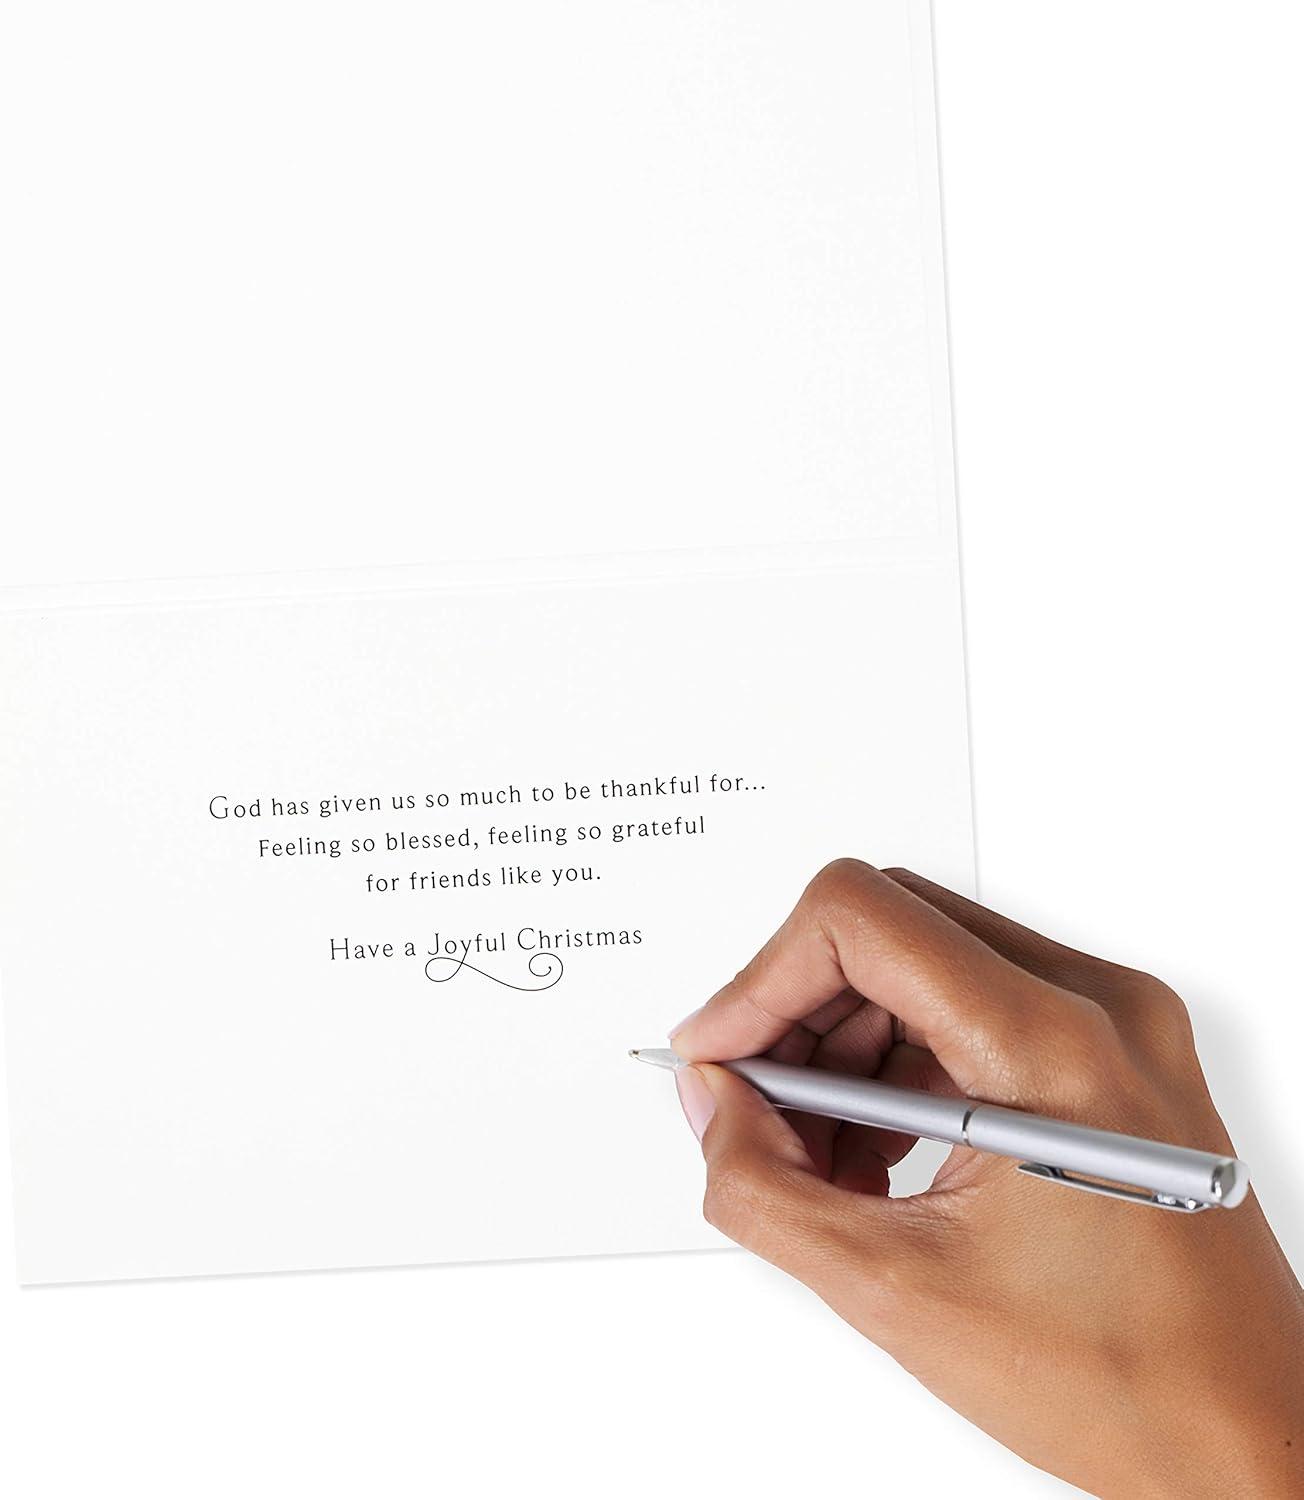 God has given us so much to be thankful for...
Feeling so blessed, feeling so grateful
for friends like you.
Have a Joyful Christmas